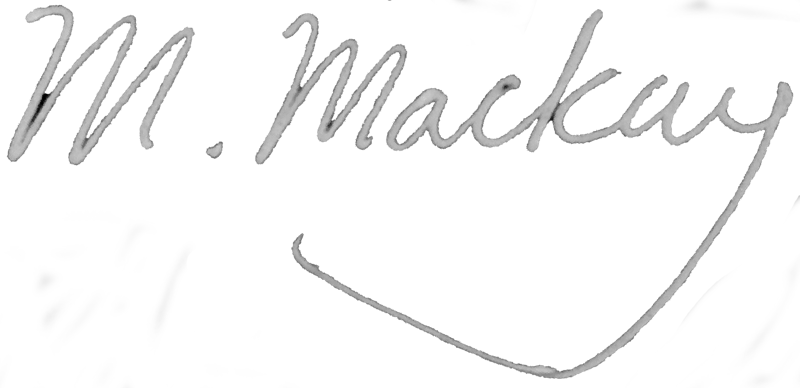 M. Mackay